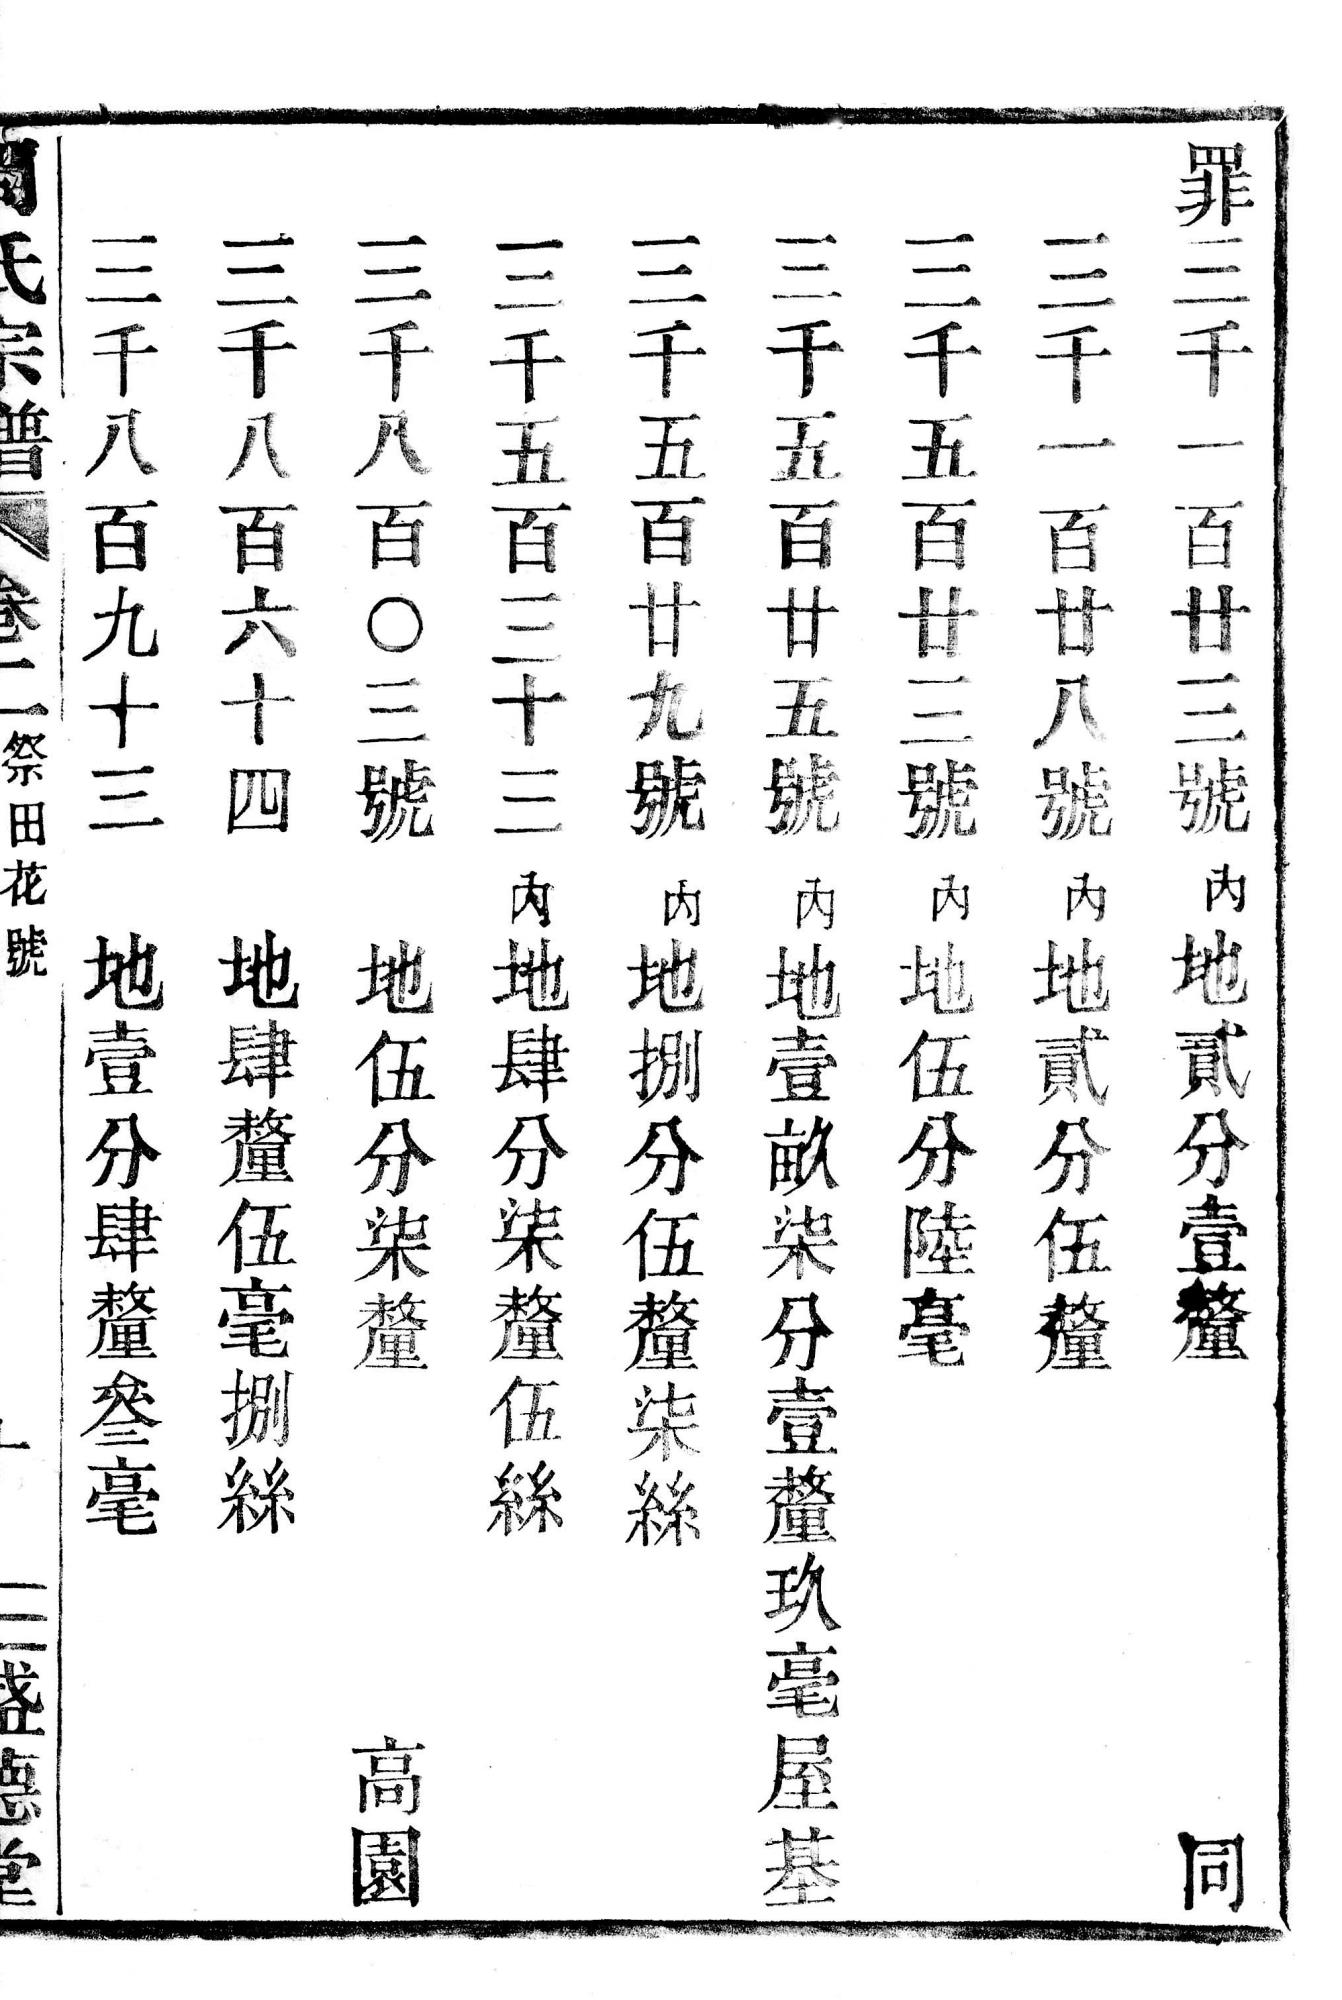 罪三千一百廿三號內地貳分壹釐同
三千一百廿八號內地貳分伍釐
三千五百廿三號內地伍分陸毫
三千五百廿五號內地壹畝柒分壹釐玖毫屋基
三千五百廿九號內地捌分伍釐柒絲
三千五百三十二內地肆分柒釐伍絲
三千八百〇三號地伍分柒釐高園
三千八百六十四地肆釐伍毫捌絲
三千八百九十三地壹分肆釐叄毫
氏宗譜卷二祭田花號 三盛德堂